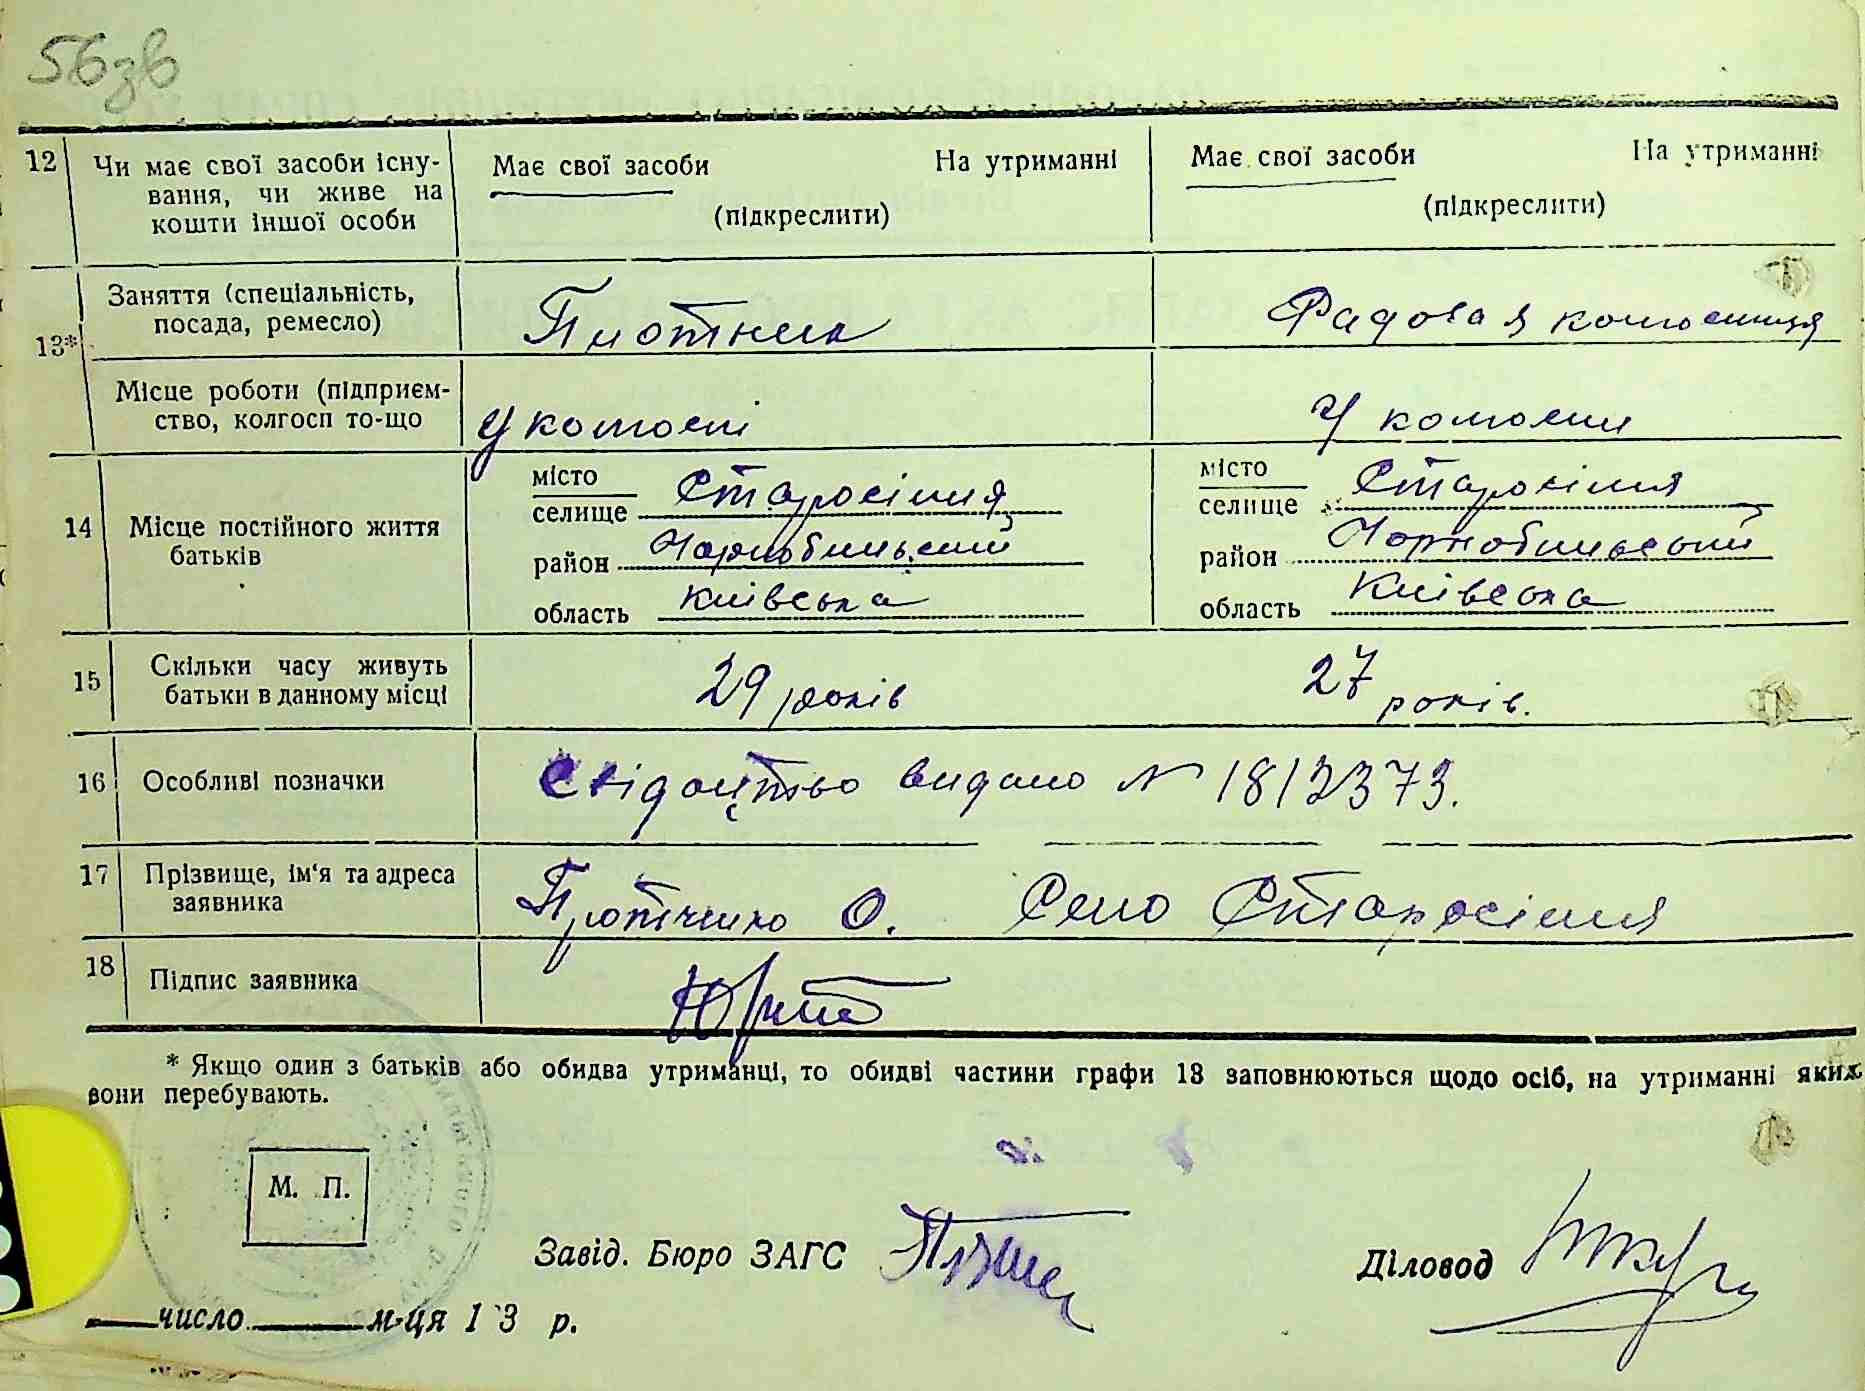 56зв
12 Чи має свої засоби існу-
вання, чи живе на
кошти іншої особи
Має свої засоби На утриманні
(підкреслити)
Має свої засоби На утриманні
(підкреслити)
13* Заняття (спеціальність,
посада, ремесло)
Плотник
Радова я колгосниця
Місце роботи (підприєм-
ство, колгосп то-що
У колгоспі
У колгоспи
14 Місце постійного життя
батьків
місто
селище Старосілля
район Чорнобильський
область Київська
місто
селище Старосілля
район Чорнобильський
область Київська
15 Скільки часу живуть
батьки в данному місці
29 років
27 років.
16 Особливі позначки
Свідоцтво видано N 1812373.
17 Прізвище, ім'я та адреса
заявника
О. Село Старосілля
18 Підпис заявника
* Якщо один з батьків або обидва утриманці, то обидві частини графи 13 заповнюються щодо осіб, на утриманні яких
вони перебувають.
М. П.
Завід. Бюро ЗАГС
Діловод
число м-ця 1 3 р.